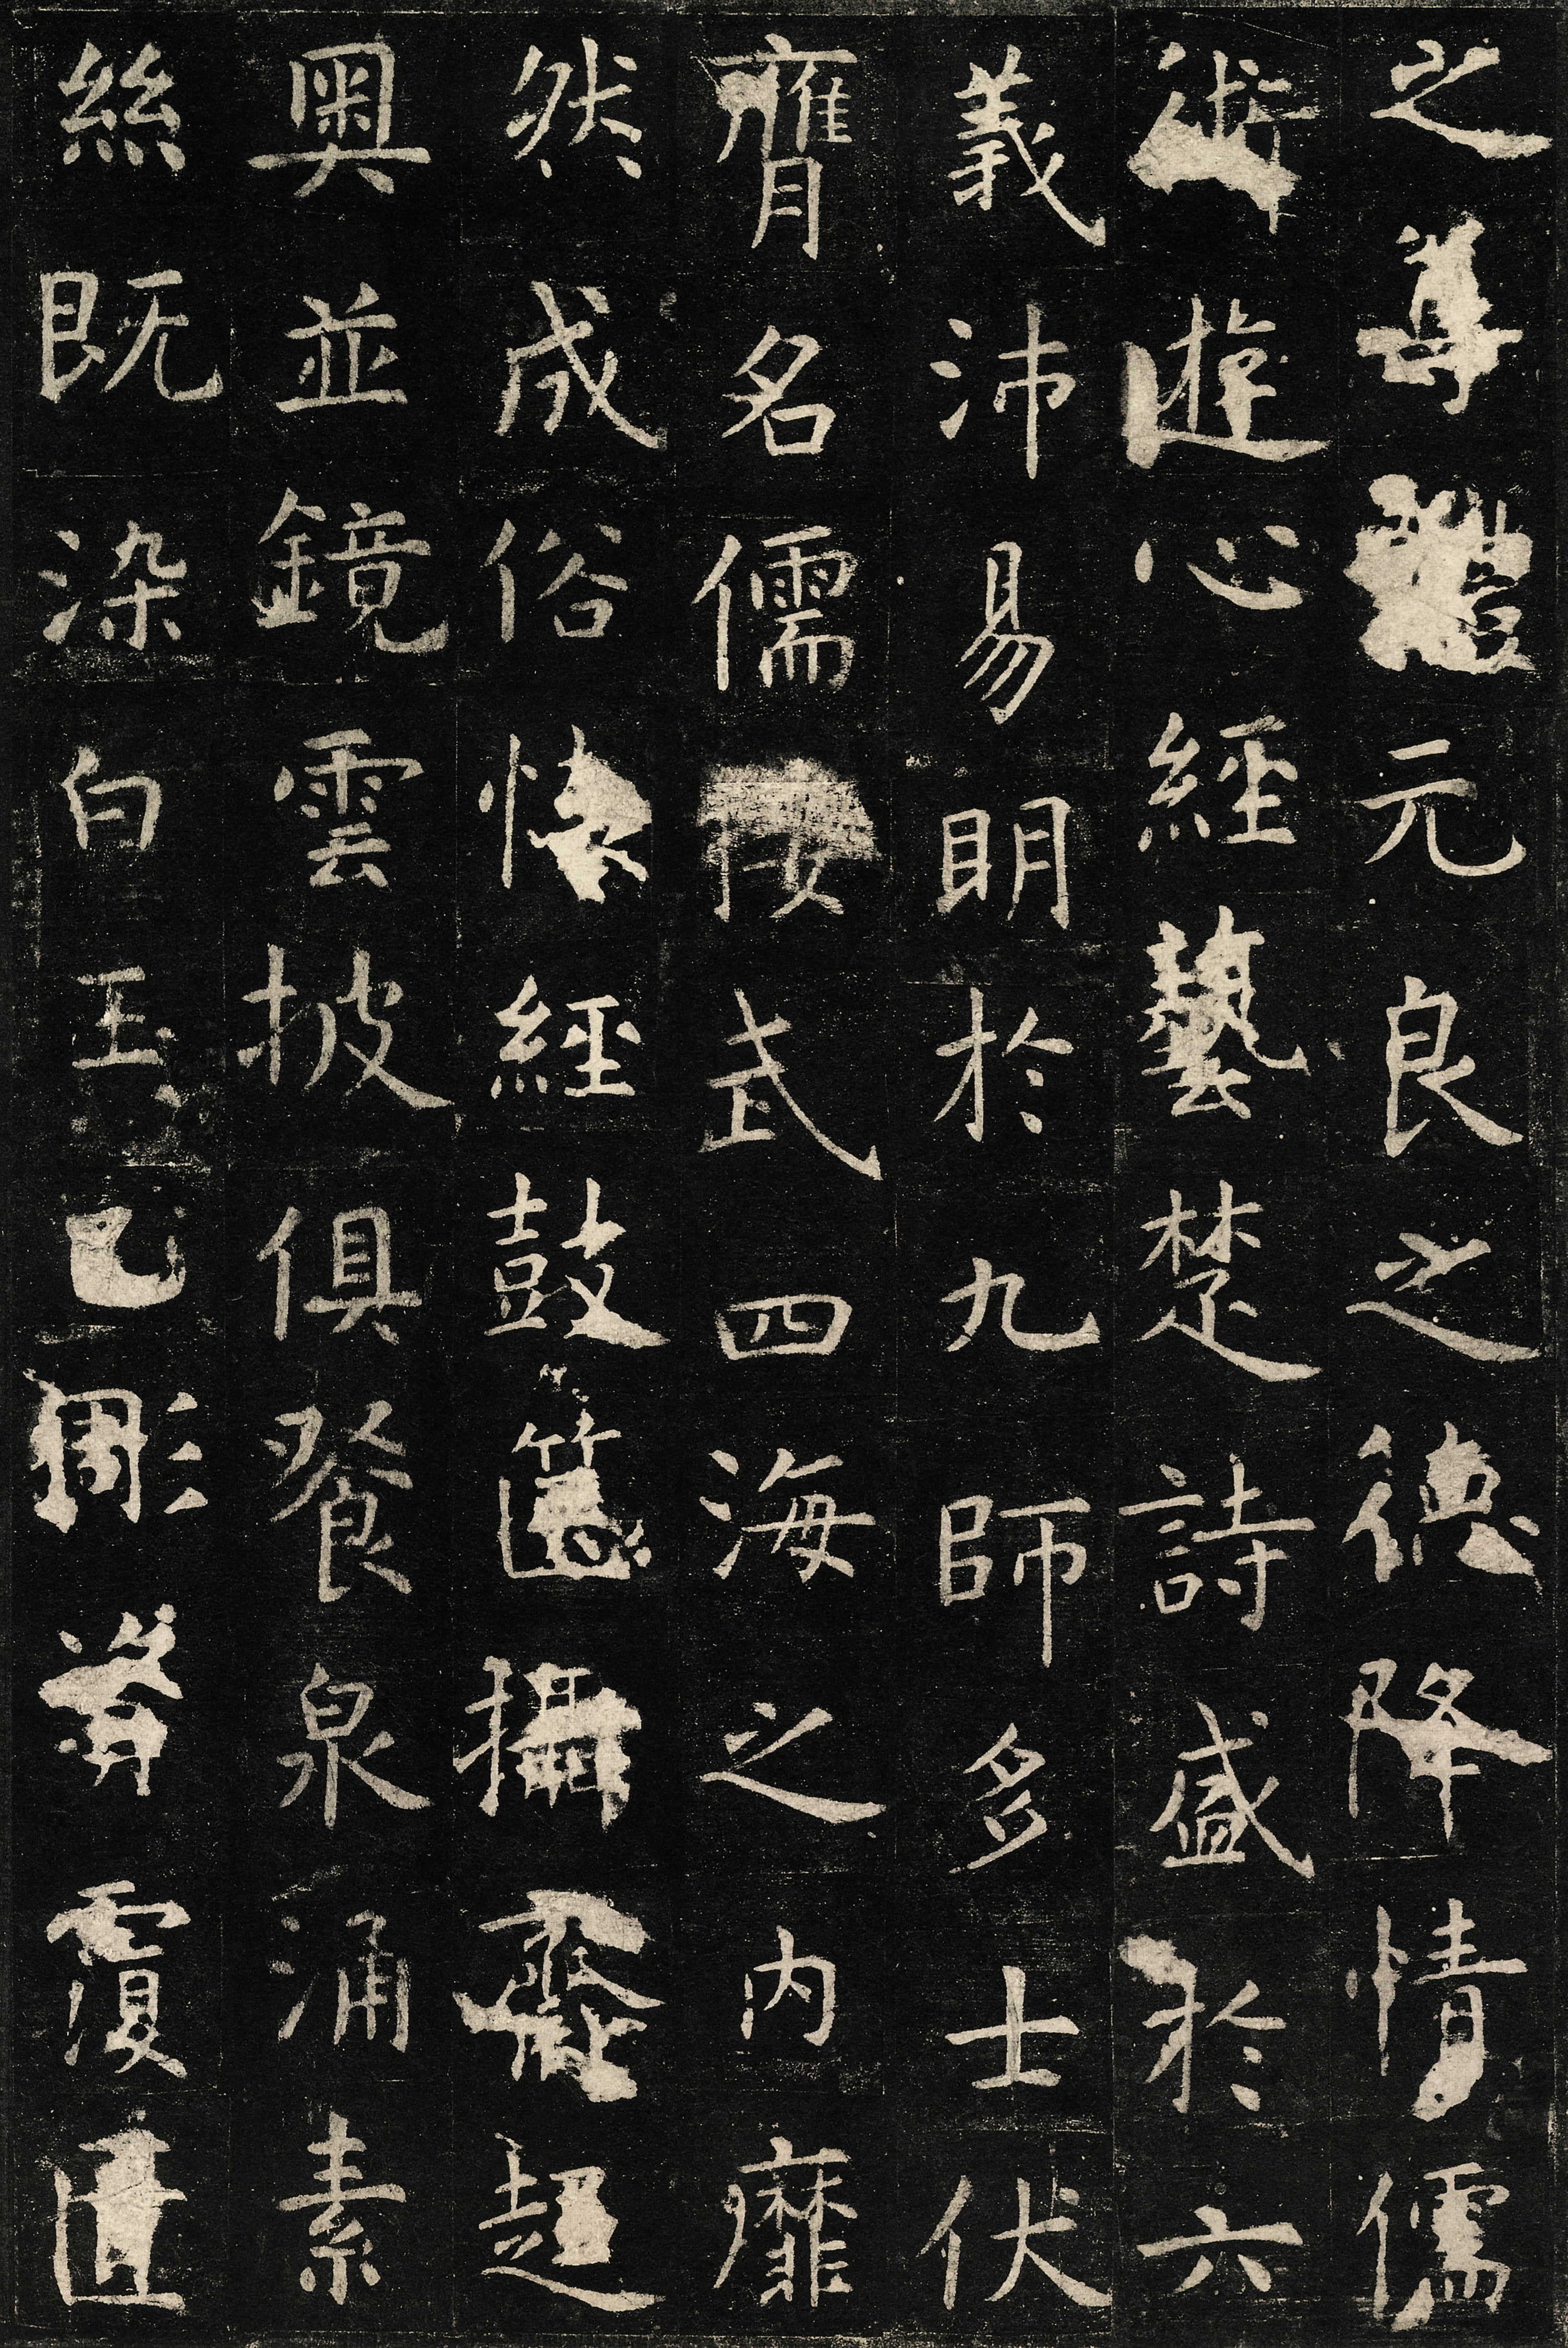 之導禮元良之德降情儒
術遊心經藝楚詩盛於六
義沛易明於九師多士伏
膺名儒接武四海之內靡
然成俗懷經鼓篋攝齊趨
奧並鏡雲披俱餐泉涌素
絲既染白玉已彫資覆匱